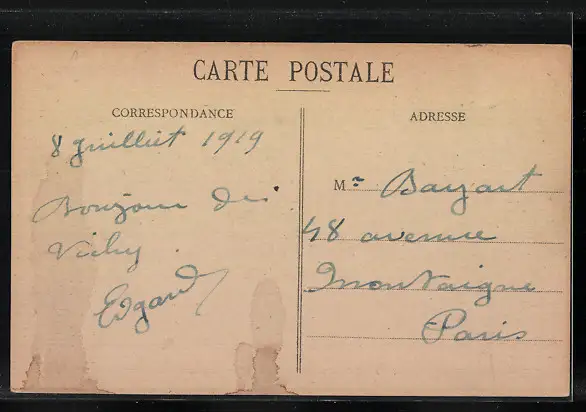 CARTE POSTALE
CORRESPONDANCE
8 juillet 1919
Bonjour de
Vichy.
Edgard
ADRESSE
Mr Bayart
48 avenue
Montaigne
Paris